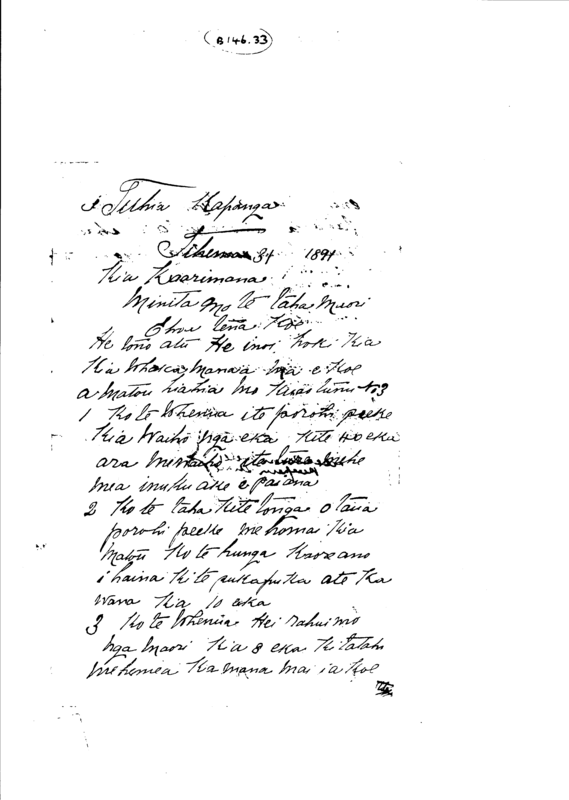 B146.33
Tuhia Kapanga
Tihema 31 1891
Kia Kaarimana
Minita mo te taha Maori
E hoa tena Koe
He tono atu He inoi hoki Kia
Kia Whakamana mai e Koe
a matou hiahia mo
1 Ko te Whenua i te porohi peeke
Kia Waiho nga eka Ki te 40 eka
ara
mea inuku ake e pai ana
2 Ko te taha Ki te tonga o taua
porohi peeke me homai Kia
Matou Ko te hunga Kaore ano
i haina Ki te pukapuka a te Ka
wana Kia 10 eka
3 Ko te Whenua Hei rahui mo
nga Maori Kia 8 eka Ki tatahi
Mehemea Ka mana mai ia Koe